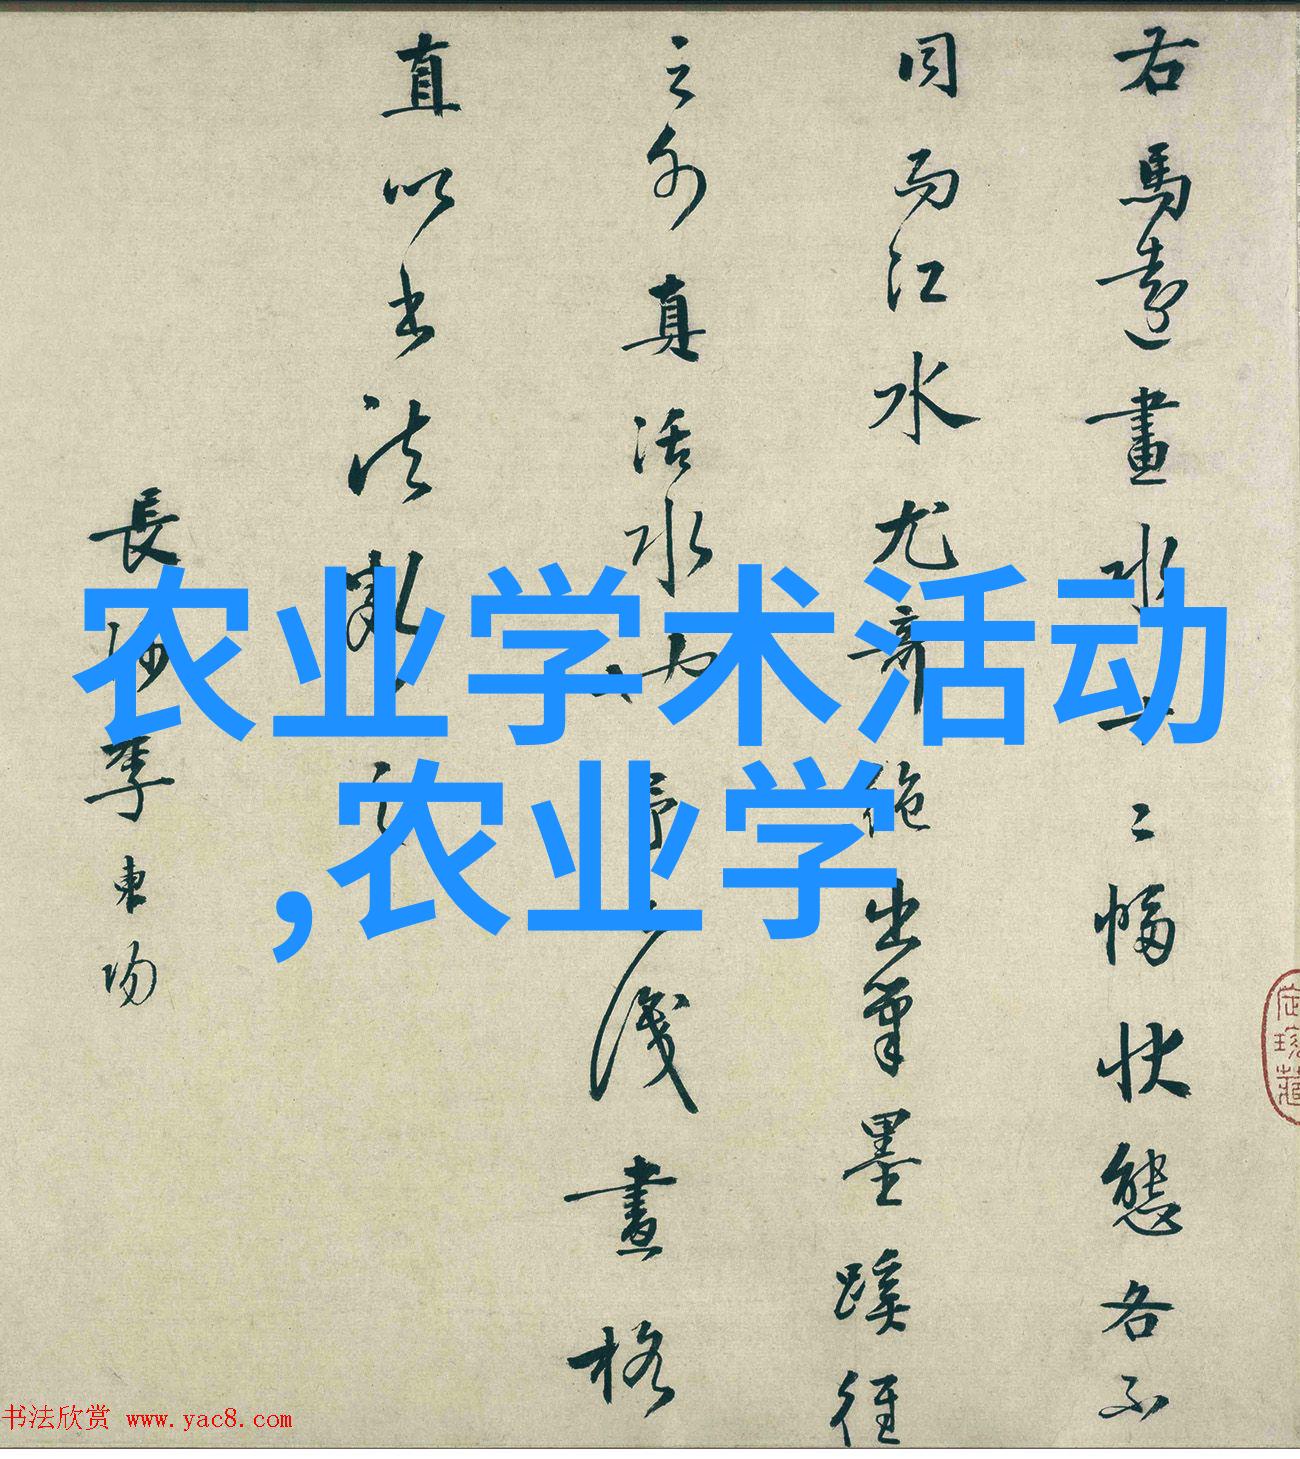 右馬遠畫水十二幅狀態各不
同而江水尤奇絶出筆墨蹊徑
之外真活水也予不識畫格
直以書法觀之
長沙李東陽
农业学术活动
,农业学
书法欣赏 www.yac8.com